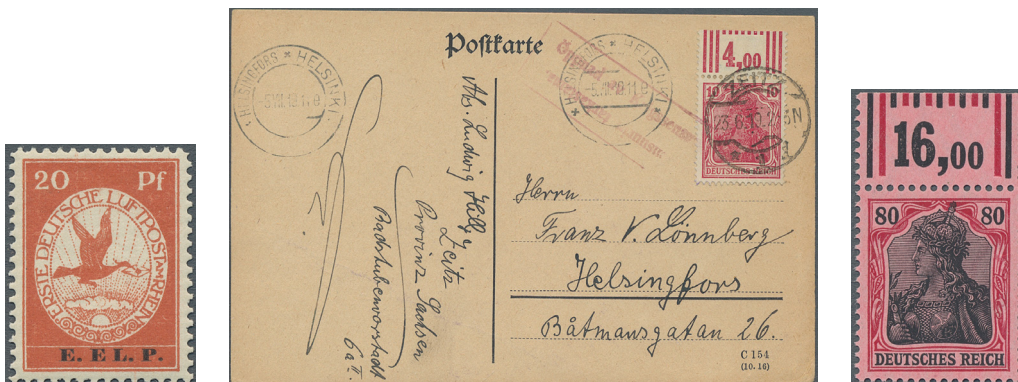 20 Pf
ERSTE DEUTSCHE LUFTPOST AM RHEIN
E. EL. P.
Postkarte
HELSINGFORS * HELSINKI *
HELSINGFORS * HELSINKI *
4,00
10 10
DEUTSCHES REICH
ZEITZ
Abs. Ludwig Hilly
Zeitz
Provinz Sachsen
Badstubenvorstadt
6a II.
Herrn
Franz V. Lönnberg
Helsingfors
Båtmansgatan 26.
C 154
(10. 16)
16,00
80 80
DEUTSCHES REICH